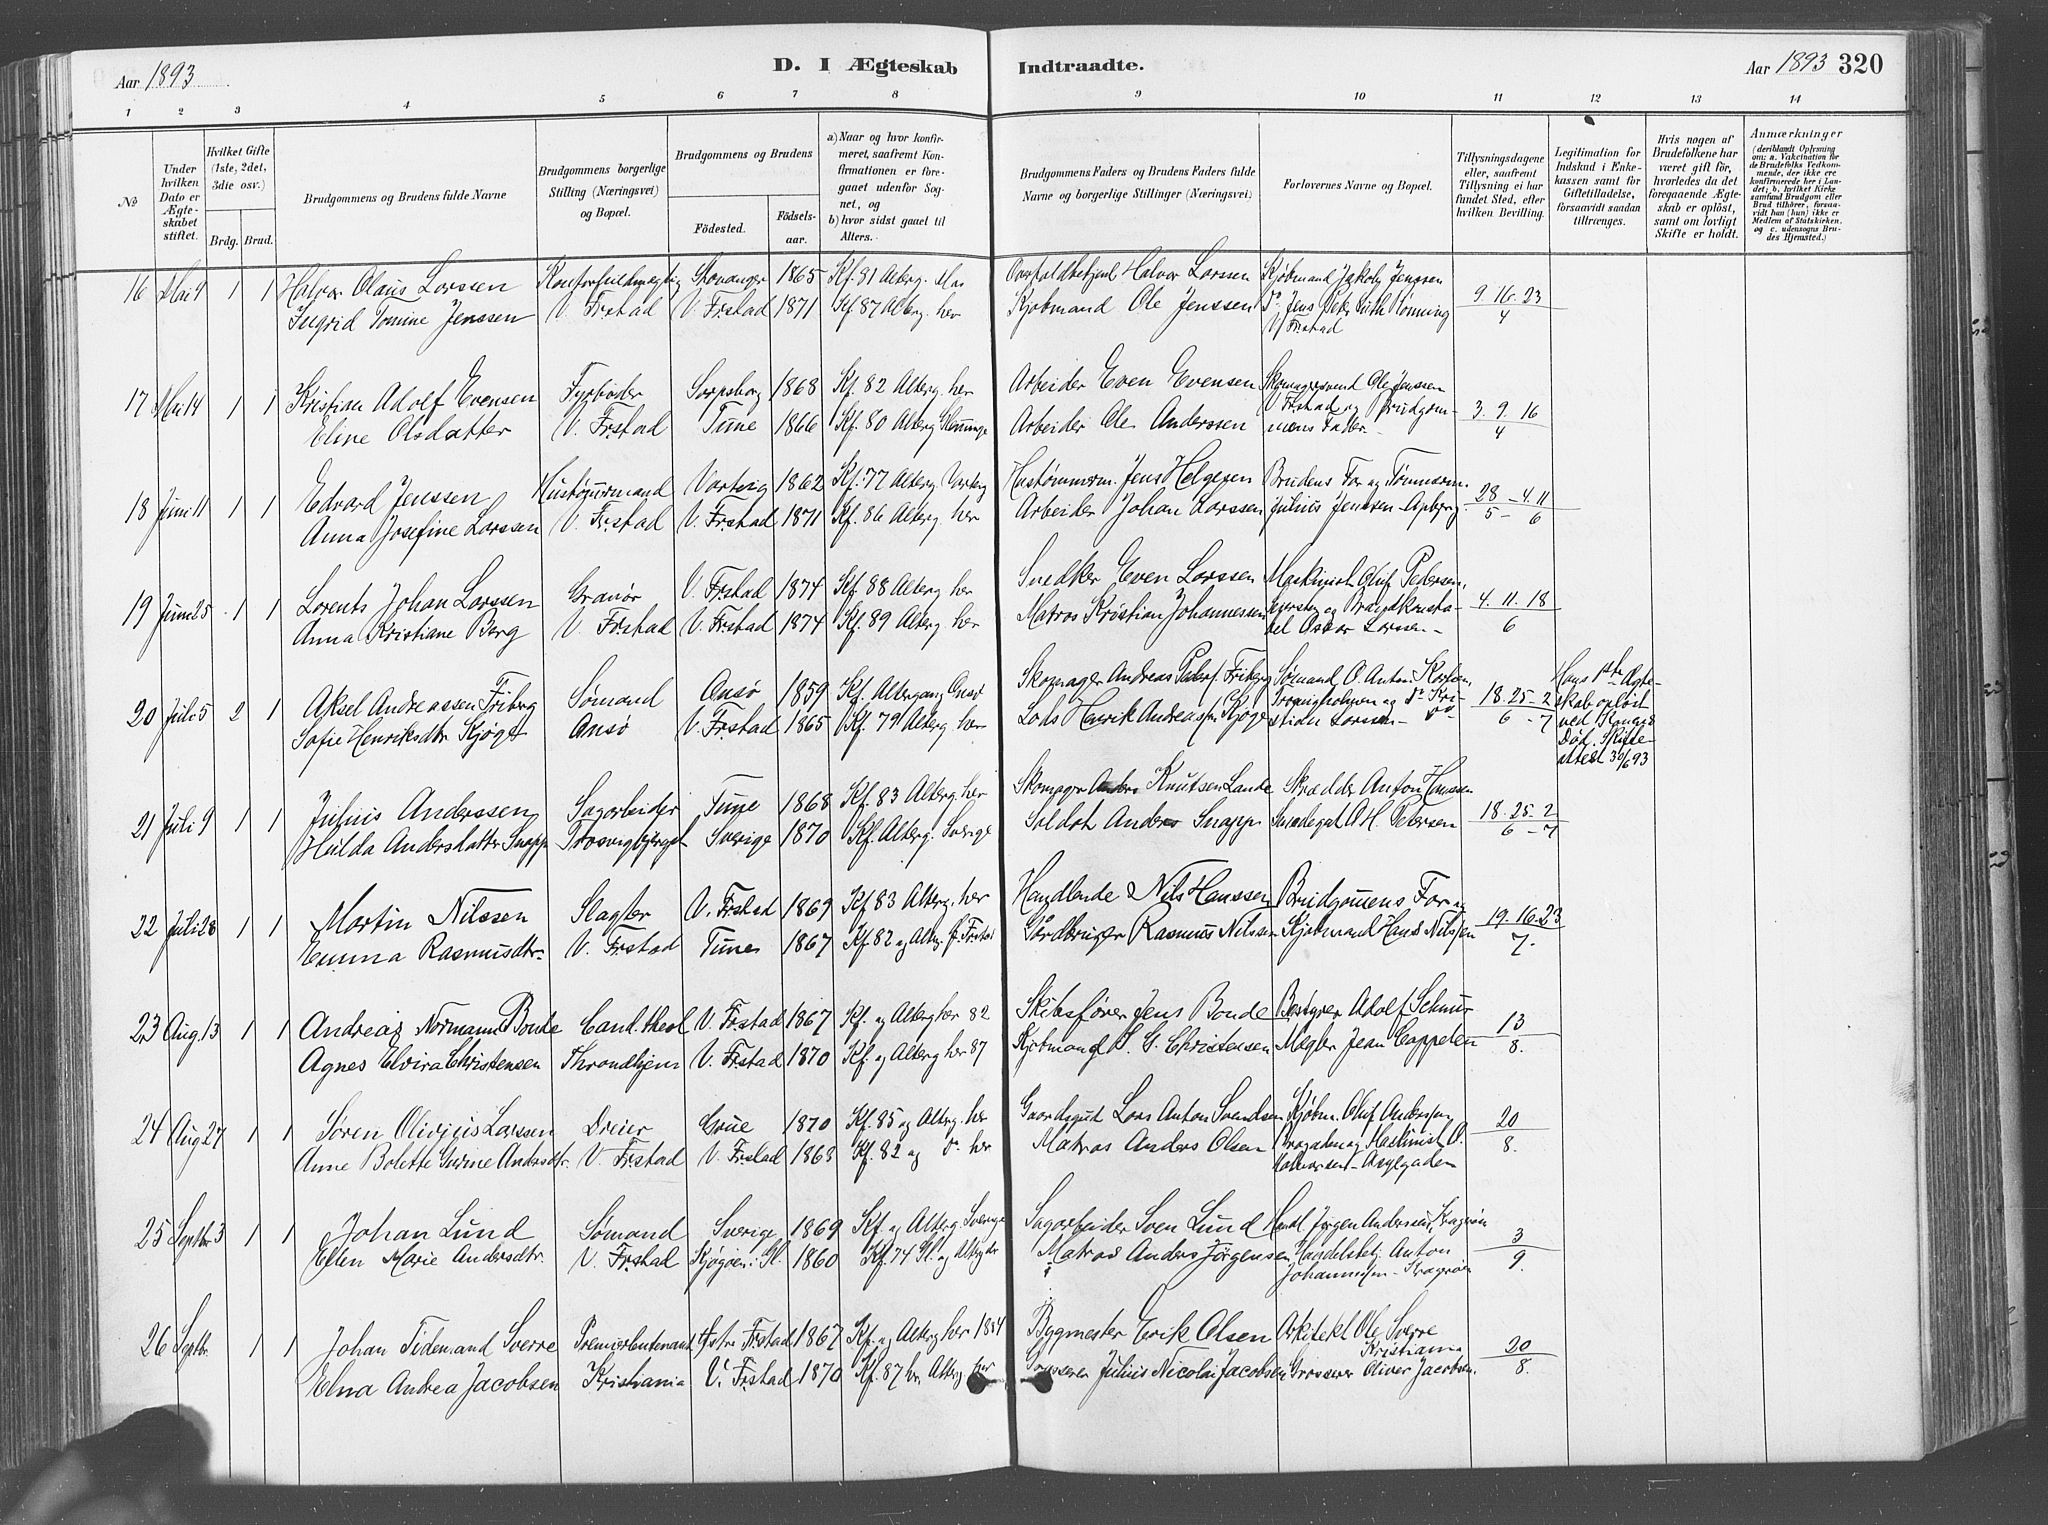 Aar 1893
D. I Ægteskab
Indtraadte.
Aar 1893 320
1 2 3 4 5 6 7 8 9 10 11 12 13 14
No
Under hvilken Dato er Ægteskabet stiftet.
Hvilket Gifte (1ste, 2det, 3die osv.)
Brdg. Brud.
Brudgommens og Brudens fulde Navne
Brudgommens borgerlige Stilling (Næringsvei) og Bopæl.
Brudgommens og Brudens
Födested.
Födselsaar.
a) Naar og hvor konfirmeret, saafremt Konfirmationen er foregaaet udenfor Sognet, og
b) hvor sidst gaaet til Alters.
Brudgommens Faders og Brudens Faders fulde Navne og borgerlige Stillinger (Næringsvei)
Forlovernes Navne og Bopæl.
Tillysningsdagene eller, saafremt Tillysning ei har fundet Sted, efter hvilken Bevilling.
Legitimation for Indskud i Enkekassen samt for Giftetilladelse, forsaavidt saadan tiltrænges.
Hvis nogen af Brudefolkene har været gift för, hvorledes da det foregaaende Ægteskab er oplöst, samt om lovligt Skifte er holdt.
Anmærkninger
(deriblandt Oplysning om: a. Vakcination for de Brudefolks Vedkommende, der ikke ere konfirmerede her i Landet; b. hvilket Kirkesamfund Brudgom eller Brud tilhörer, forsaavidt han (hun) ikke er Medlem af Statskirken, og c. udensogns Brudes Hjemsted.)
16 Mai 4 1 1 Halvor Olaus Larssen Stavanger 1865 Kf. 81 Alterg. Halvor Larssen Kjøbmand Jakob Jenssen 9. 16. 23
Ingrid Tomine Jenssen V. Frstad V. Frstad 1871 Kf. 87 Alterg. her Kjøbmand Ole Jenssen Rønning 4
V. Frstad
17 Mai 14 1 1 Kristian Adolf Evensen Fyrbøder Sarpsborg 1868 Kf. 82 Alterg. her Arbeider Even Evensen Skomagersvend Ole Jenssen 3. 9. 16
Eline Olsdatter V. Frstad Tune 1866 Kf. 80 Alterg. Arbeider Ole Anderssen V. Frstad og Brudgommens Fader. 4
18 Juni 11 1 1 Edvard Jenssen Hustømmermand Varteig 1862 Kf. 77 Alterg. Varteig Hustømmerm. Jens Helgesen Brudens Far og Tømmerm. 28 – 4. 11
Anna Josefine Larssen V. Frstad V. Frstad 1871 Kf. 86 Alterg. her Arbeider Johan Larssen Julius Jenssen 5 – 6
19 Juni 25 1 1 Lorents Johan Larssen Gravør V. Frstad 1874 Kf. 88 Alterg. her Snedker Even Larssen Maskinist Oluf Petersen 4. 11. 18
Anna Kristiane Berg V. Frstad V. Frstad 1874 Kf. 89 Alterg. her Matros Kristian Johannessen og Brandkonstabel Oscar Larsen 6
20 Juli 5 2 1 Aksel Andreassen Friberg Sømand Onsø 1859 Kf. Altergang Onsø Skomager Andreas Friberg Sømand O. Anton 18. 25 – 2 Hans 1ste Ægteskab opløst
Sofie Henriksdtr Kjøge Onsø V. Frstad 1865 Kf. 79 Alterg. her Lods Henrik Andreassen Kjøge og do Kristian Larsen do 6 – 7 ved Konens Død. Skifteattest 30/6 93
21 Juli 9 1 1 Julius Anderssen Sagarbeider Tune 1868 Kf. 83 Alterg. her Skomager Anders Knutsen Lande Skrædder Anton Hanssen 18. 25. 2
Hulda Andersdatter Snapp Trosvigbjerget Sverige 1870 Kf. Alterg. Sverige Soldat Anders Snapp Smedegat A. H. Petersen 6 – 7
22 Juli 28 1 1 Martin Nilssen Slagter V. Frstad 1869 Kf. 83 Alterg. her Handlende Nils Hanssen Brudgommens Far og 19. 16. 23
Emma Rasmusdtr. V. Frstad Tune 1867 Kf. 82 og Alterg. Frstad Gårdbruger Rasmus Nilssen Kjøbmand Hans Nilssen 7.
23 Aug. 13 1 1 Andreas Normann Bonde Cand. theol V. Frstad 1867 Kf. og Alterg her 82 Skibsfører Jens Bonde Bestyrer Adolf Schnur 13
Agnes Elvira Christensen Throndhjem V. Frstad 1870 Kf. og Alterg her 87 Kjøbmand G. Christensen Mægler Jean Cappelen 8.
24 Aug 27 1 1 Søren Olivius Larssen Dreier Grue 1870 Kf. 85 og Alterg. her Gaardsgut Lars Anton Svendsen Kjøbm. Oluf Andersson 20
Anne Bolette Gurine Andersdtr. V. Frstad V. Frstad 1863 Kf. 82 og do her Matros Anders Olsen og Maskinist O. 8.
Halvorsen – Asylgaden
25 Septbr 3 1 1 Johan Lund Sømand Sverige 1869 Kf. og Alterg. Sverige Sagarbeider Sven Lund Handl. Jørgen Andersen, Kragerøen 3
Ellen Marie Andersdtr. V. Frstad Kjøgøen i Gl. 1860 Kf. 74 Gl. og Alterg. Matros Anders Jørgensen Handelsbetj. Anton Johannessen – Kragerøen 9.
26 Septbr. 1 1 Johan Tidemand Sverre Premierløitenant Østre Frstad 1867 Kf. og Alterg her 1884 Bygmester Erik Olsen Arkitekt Ole Sverre Kristiania 20
Elna Andrea Jacobsen Kristiania V. Frstad 1870 Kf. 87 her Alterg. her Grosserer Julius Nicolai Jacobsen Grosserer Oliver Jacobsen. 8.